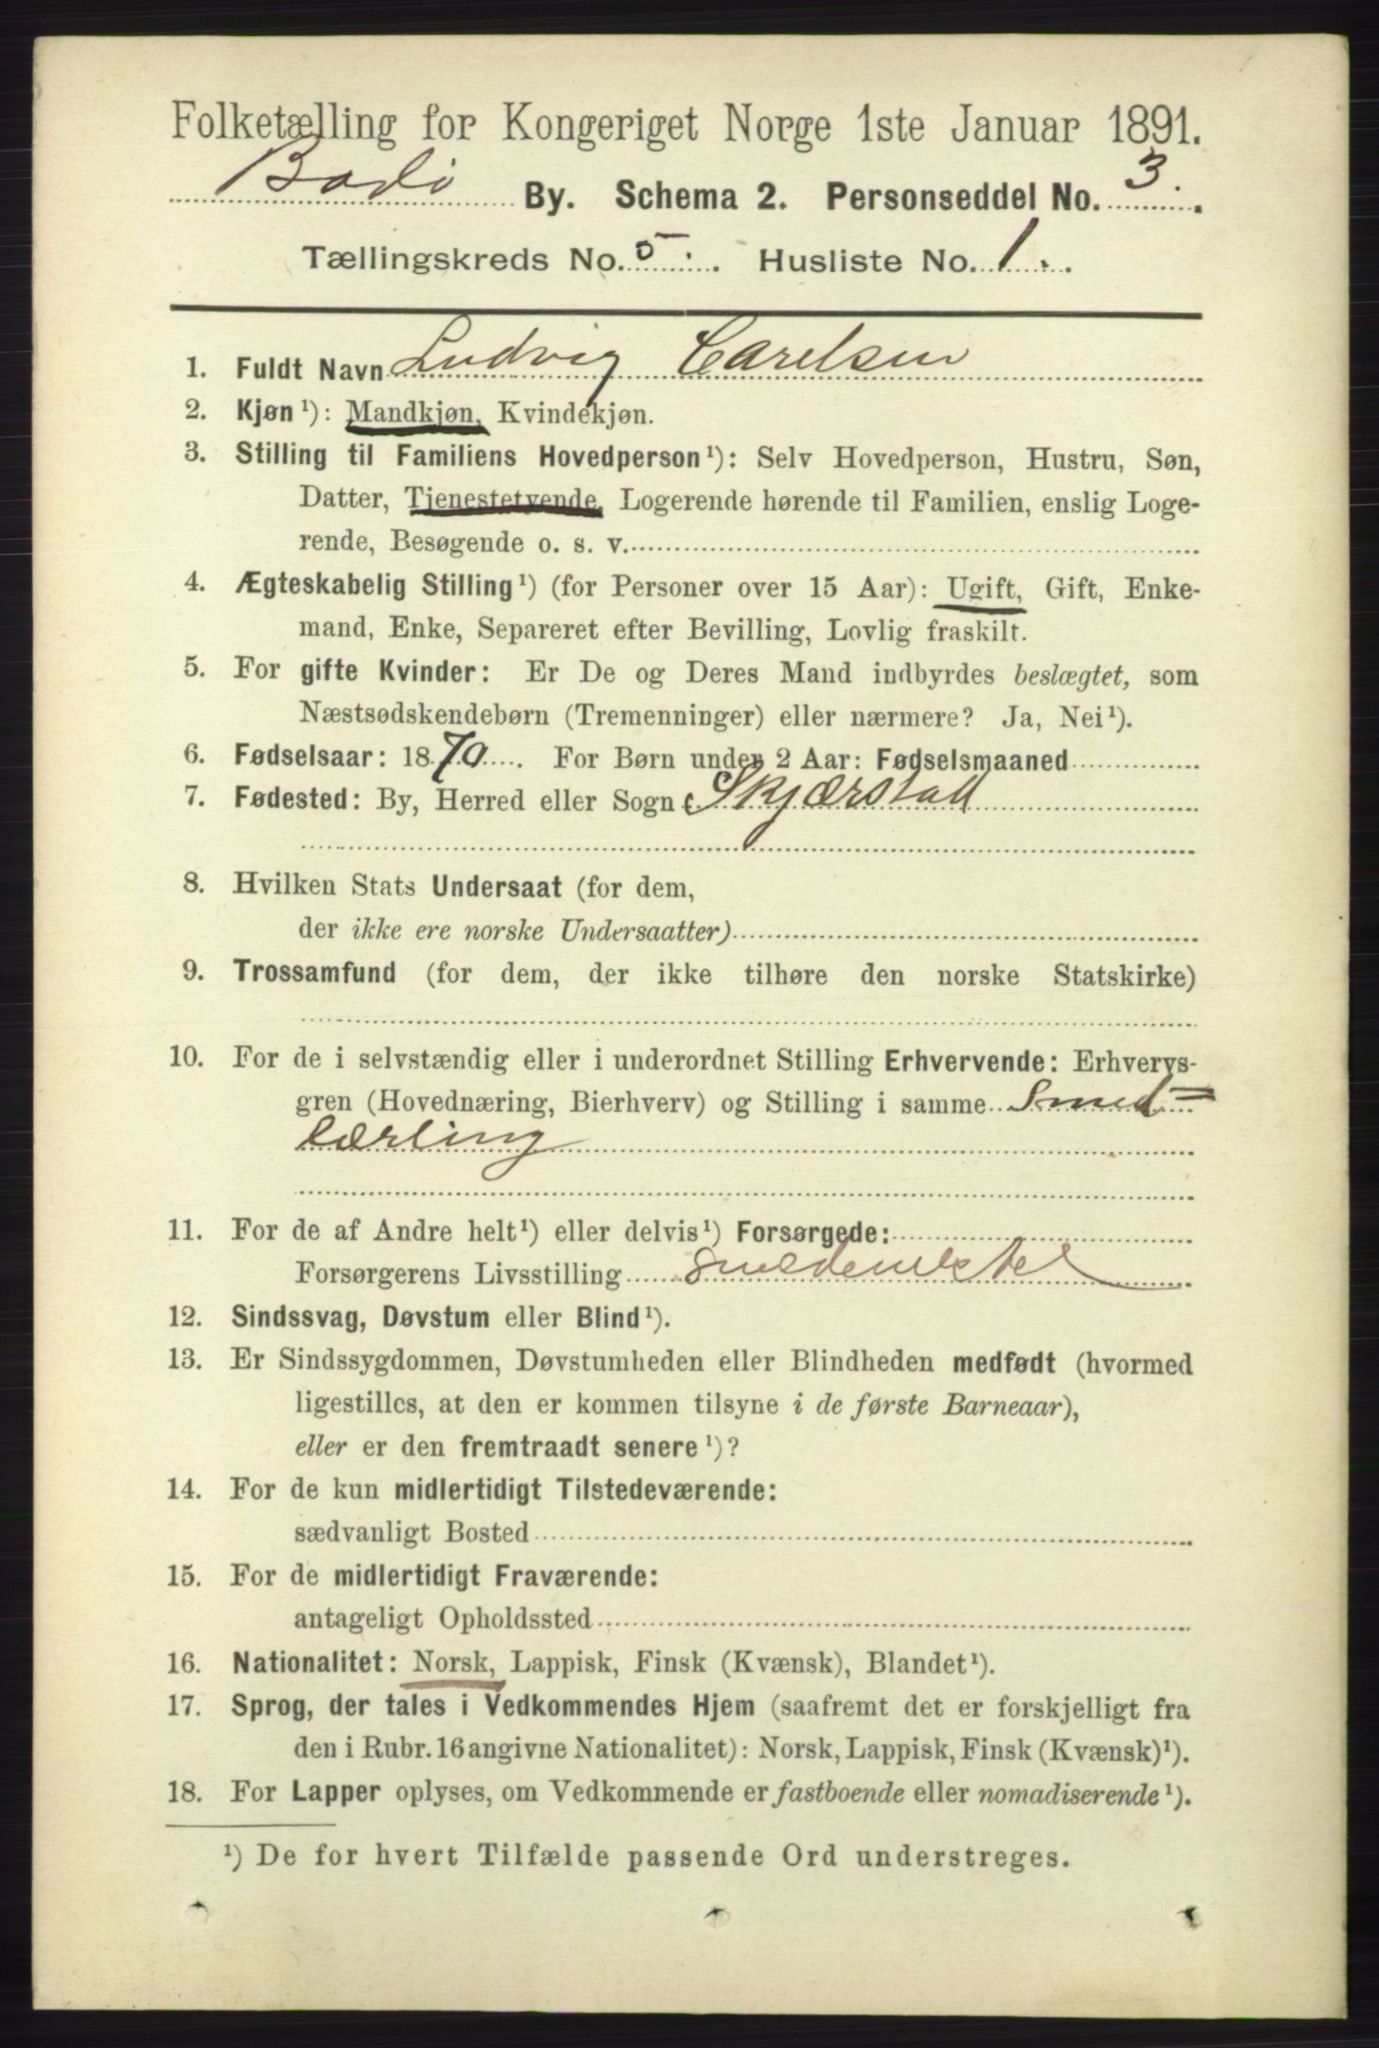 Folketælling for Kongeriget Norge 1ste Januar 1891.
Bodø By. Schema 2. Personseddel No. 3.
Tællingskreds No. 5. Husliste No. 1.
1. Fuldt Navn Ludvig Carelsen
2. Kjøn ¹): Mandkjøn, Kvindekjøn.
3. Stilling til Familiens Hovedperson ¹): Selv Hovedperson, Hustru, Søn,
Datter, Tjenestetyende, Logerende hørende til Familien, enslig Loge-
rende, Besøgende o. s. v.
4. Ægteskabelig Stilling ¹) (for Personer over 15 Aar): Ugift, Gift, Enke-
mand, Enke, Separeret efter Bevilling, Lovlig fraskilt.
5. For gifte Kvinder: Er De og Deres Mand indbyrdes beslægtet, som
Næstsødskendebørn (Tremenninger) eller nærmere? Ja, Nei ¹).
6. Fødselsaar: 1870. For Børn under 2 Aar: Fødselsmaaned
7. Fødested: By, Herred eller Sogn Skjærstad
8. Hvilken Stats Undersaat (for dem,
der ikke ere norske Undersaatter)
9. Trossamfund (for dem, der ikke tilhøre den norske Statskirke)
10. For de i selvstændig eller i underordnet Stilling Erhvervende: Erhvervs-
gren (Hovednæring, Bierhverv) og Stilling i samme Smed=
lærling
11. For de af Andre helt ¹) eller delvis ¹) Forsørgede:
Forsørgerens Livsstilling Smedemester
12. Sindssvag, Døvstum eller Blind ¹).
13. Er Sindssygdommen, Døvstumheden eller Blindheden medfødt (hvormed
ligestilles, at den er kommen tilsyne i de første Barneaar),
eller er den fremtraadt senere ¹)?
14. For de kun midlertidigt Tilstedeværende:
sædvanligt Bosted
15. For de midlertidigt Fraværende:
antageligt Opholdssted
16. Nationalitet: Norsk, Lappisk, Finsk (Kvænsk), Blandet ¹).
17. Sprog, der tales i Vedkommendes Hjem (saafremt det er forskjelligt fra
den i Rubr. 16 angivne Nationalitet): Norsk, Lappisk, Finsk (Kvænsk) ¹).
18. For Lapper oplyses, om Vedkommende er fastboende eller nomadiserende ¹).
¹) De for hvert Tilfælde passende Ord understreges.